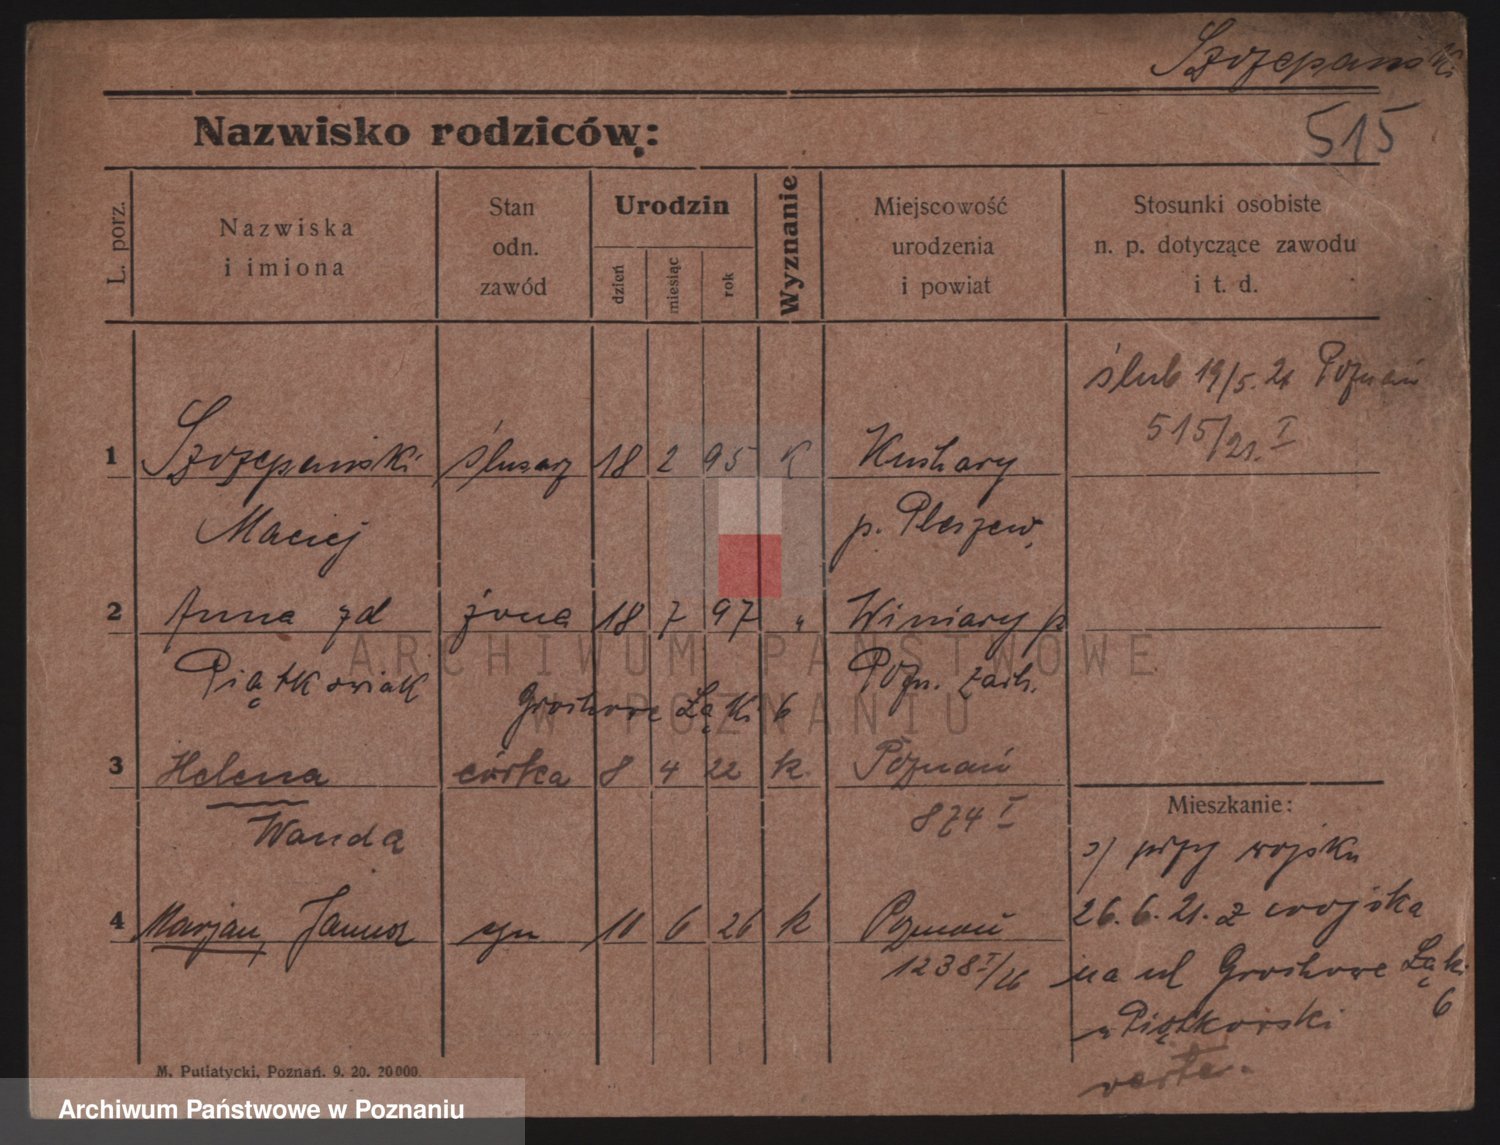 Szczepański
515
Nazwisko rodziców:
L. porz.
Nazwiska
i imiona
Stan
odn.
zawód
Urodzin
dzień
miesiąc
rok
Wyznanie
Miejscowość
urodzenia
i powiat
Stosunki osobiste
n. p. dotyczące zawodu
i t. d.
ślub 19/5. 21 Poznań
515/21. I
1 Szczepański ślusarz 18 2 95 K Kuchary
Maciej p. Pleszew
2 Anna zd żona 18 7 97 „ Winiary p
Piątkowiak Pozn. zach.
Grochowe Łąki 6
3 Helena córka 8 4 22 k. Poznań
Wanda 874 I
4 Marjan, Janusz syn 10 6 26 k Poznań
1238 I/26
Mieszkanie:
przy wojsku
26.6.21. z wojska
na ul Grochowe Łąki
6
Piątkowski
verte.
M. Putiatycki, Poznań. 9. 20. 20000.
ARCHIWUM PAŃSTWOWE
W POZNANIU
Archiwum Państwowe w Poznaniu